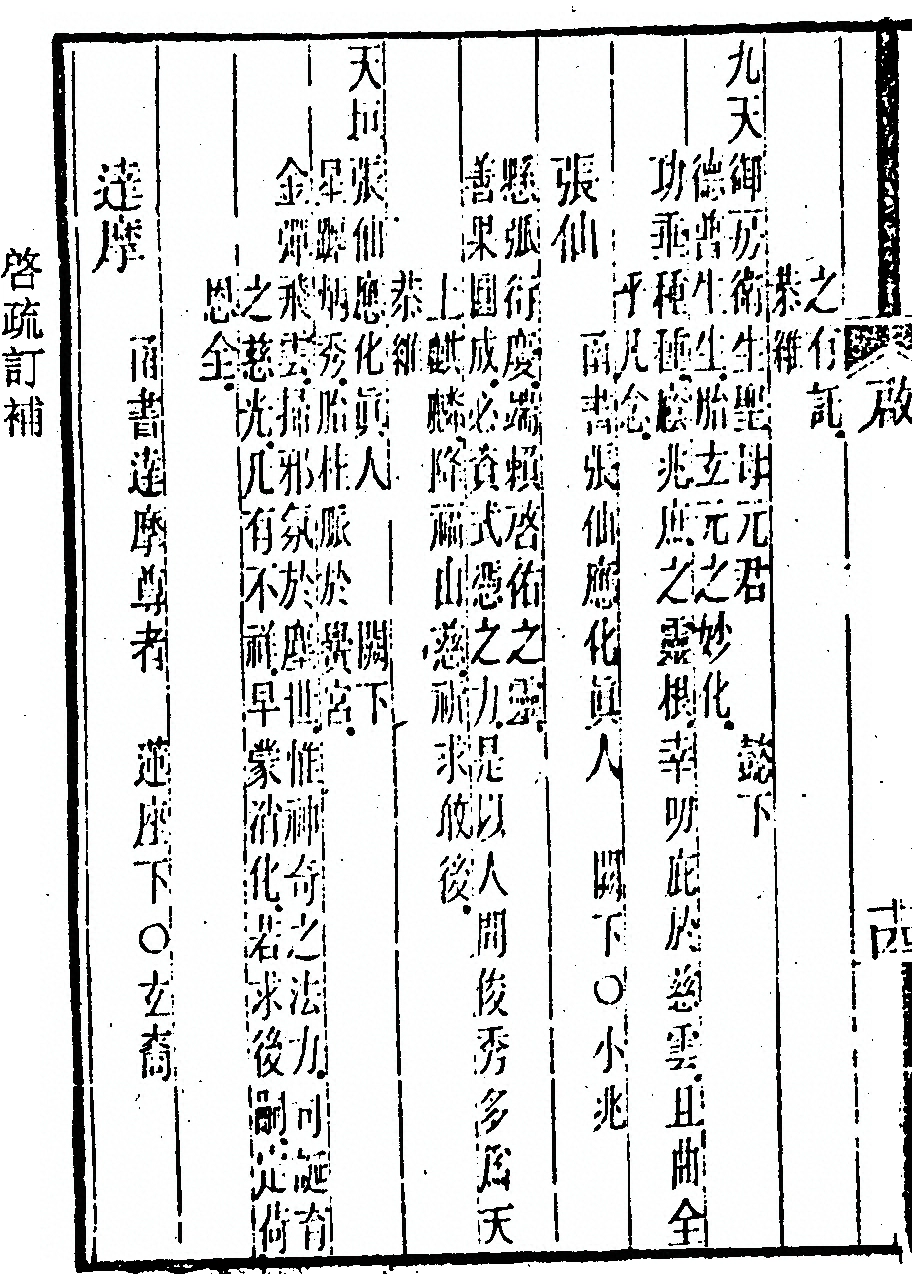 啟
十四
之有託
恭維
九天御房衛生聖母元君　懿下
德普生生胎玄元之妙化
功乖種種蔭兆庶之靈根幸叨庇於慈雲且曲全
乎凡念
張仙　函書張仙應化眞人　闕下〇小兆
懸弧衍慶端賴啓佑之靈
善果圓成必資式憑之力是以人間俊秀多爲天
上麒麟降福山慈祈求啟後
恭維
天垣張仙應化眞人　闕下
星躔炳秀胎性脈於黌宮
金彈飛雲掃邪氛於塵世惟神奇之法力可誕育
之慈光凡有不祥早蒙消化若求後嗣定荷
恩全
達摩　函書達摩尊者　蓮座下〇玄裔
啓疏訂補